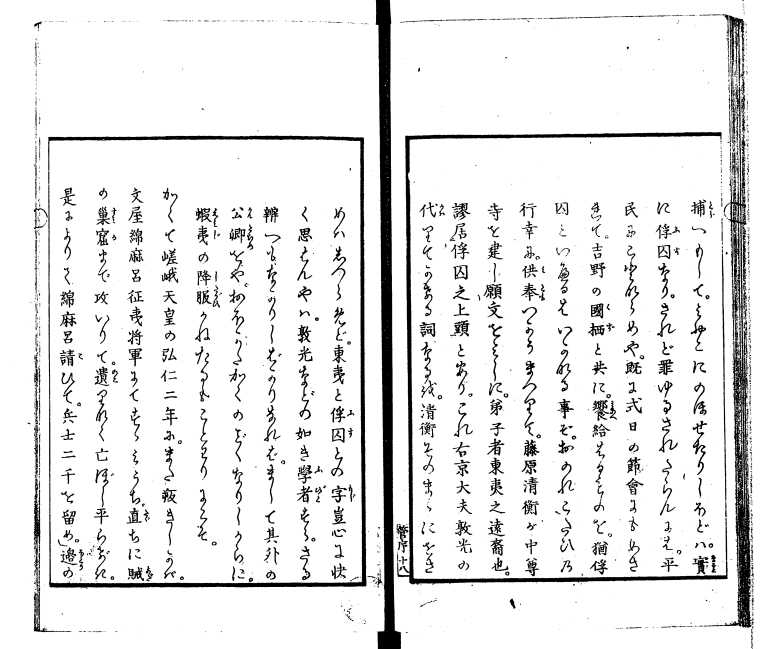 捕へられて。みやこにのぼせたりしほどハ。實
に俘囚なり。されど罪ゆるされたらんには。平
民にことならめや。既に式日の節會にもめさ
れて。吉野の國栖と共に。饗給はるものを。猶俘
囚といへるはいかなる事ぞ。おのれこたひ乃
行幸に。供奉つかうまつりて。藤原清衡が中尊
寺を建し願文をみしに。弟子者東夷之遠裔也。
謬居俘囚之上頭と云り。これ右京大夫敦光の
代りてかきたる詞なるを。清衡その まゝにをき
めハあしからねど。東夷と俘囚との字豈心に快
く思はんやハ。敦光などの如き學者すら。さる
辨へもなかりしばかりなれば。まして其外の
公卿をや。おほかたかくのごくなりしからに。
蝦夷の降服かねたるもことわりにこそ。
かくて嵯峨天皇の弘仁二年に。また叛きしかば。
文屋綿麻呂征夷將軍にてむかひうち。直ちに賊
の巣窟まで攻いりて。遺りなく亡ぼし平らげたに。
是によりて綿麻呂請ひて。兵士二千を留め。邊の